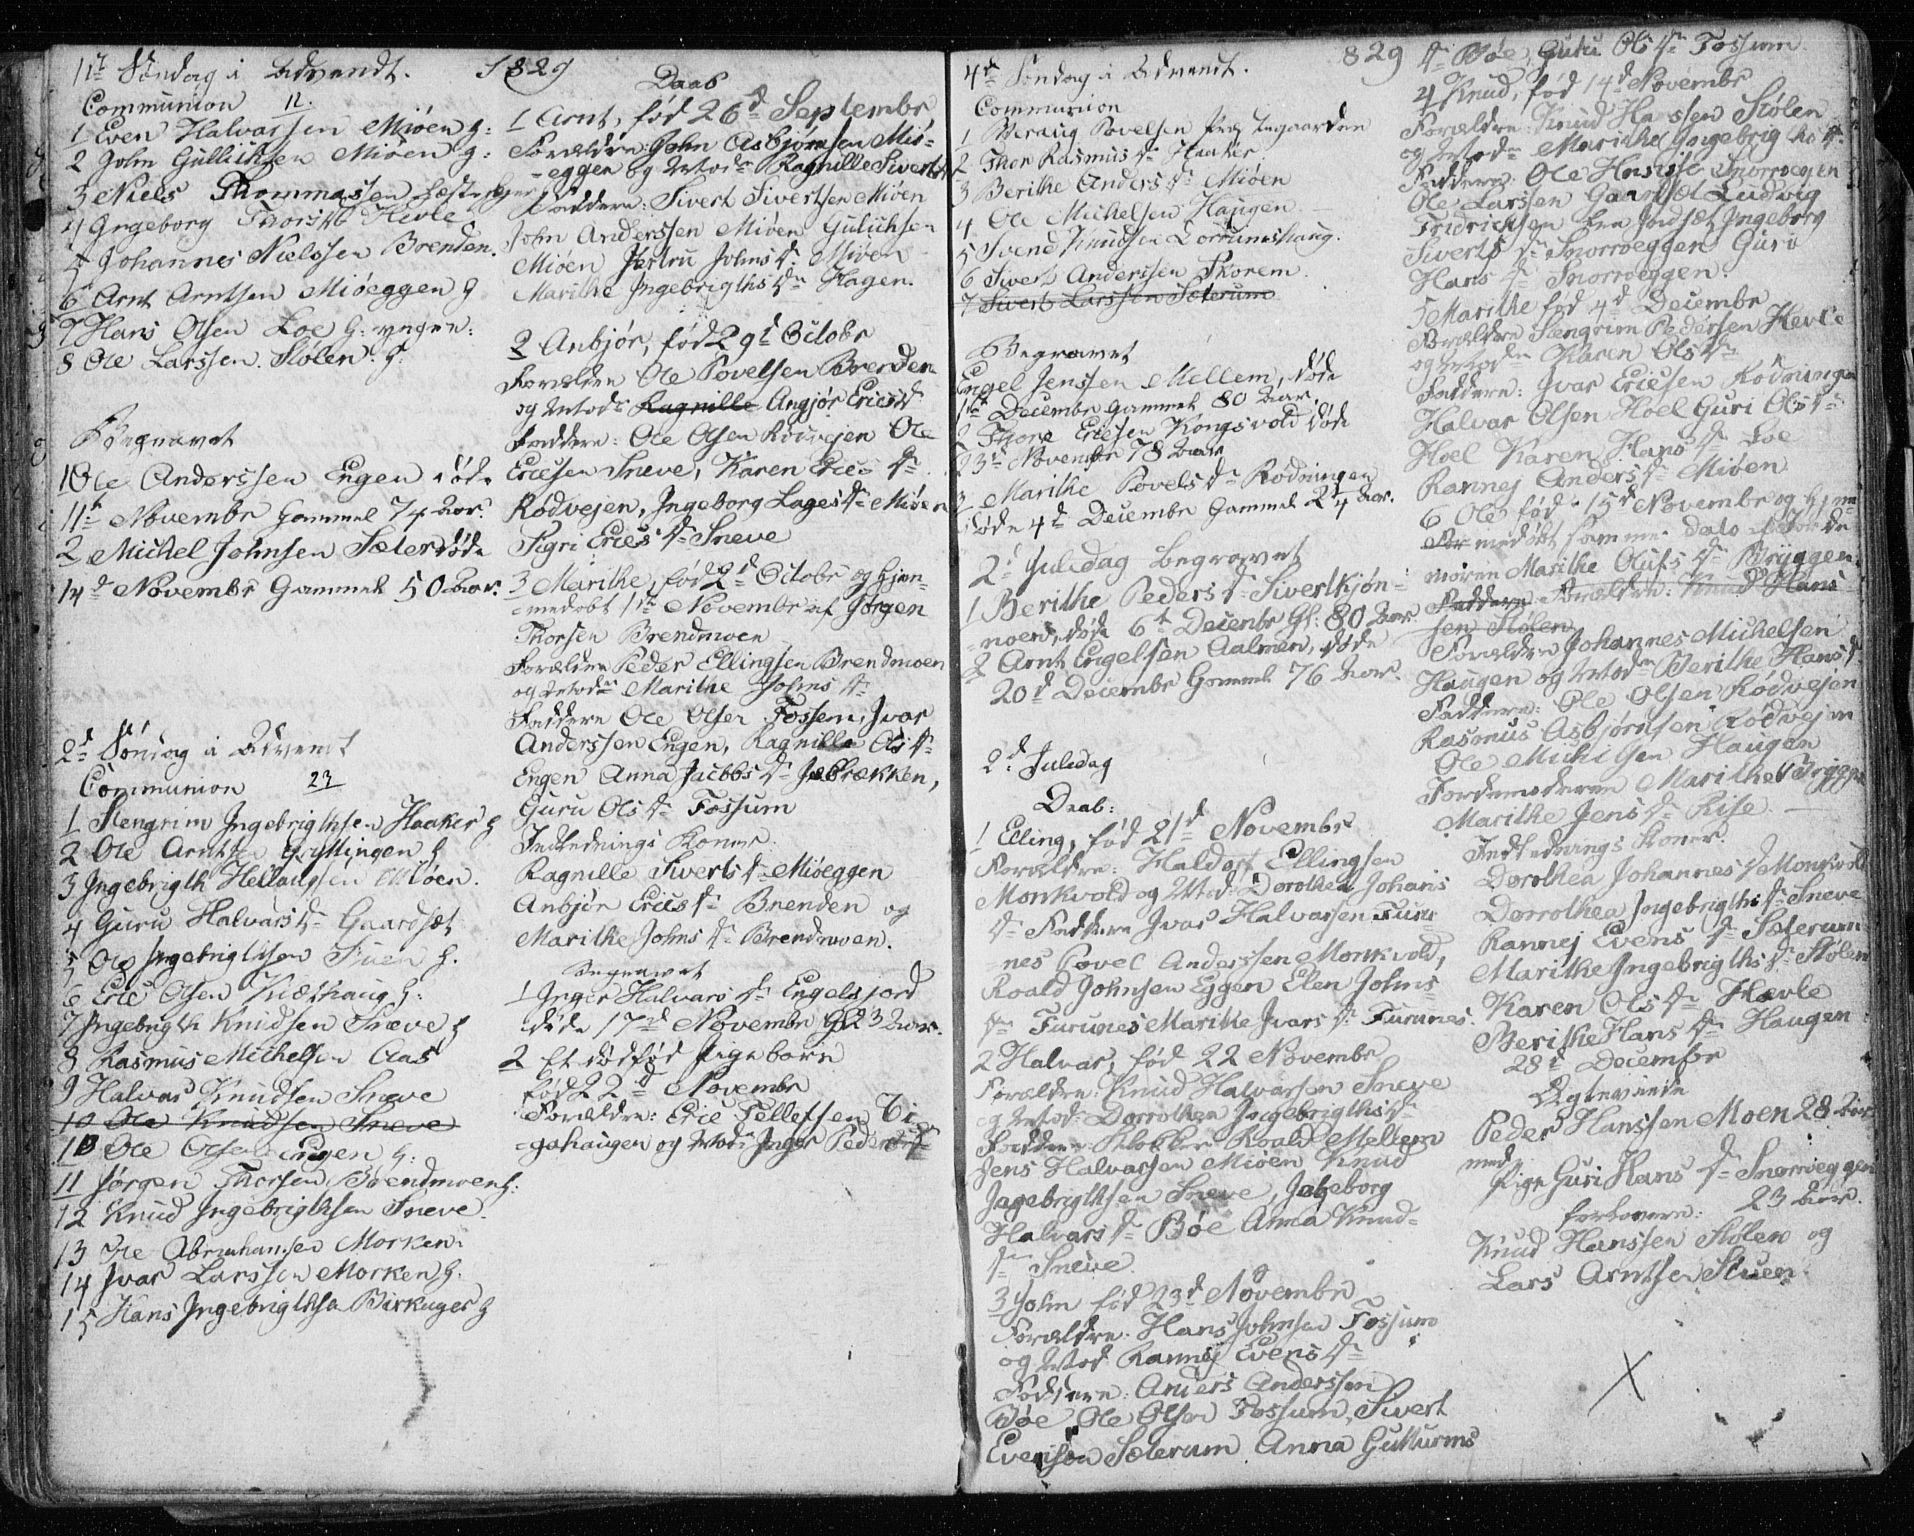 1te Søndag i Advendt. 1829
Communion 12.
1 Even Halvarssen Miøen g:
2 John Gulliksen Miøen g:
3 Niels Thommassen
4 Ingeborg Thorsd Hevle
5 Johannes Nielssen Brenden.
6 Arnt Arntsen Miøeggen g
7 Hans Olsen Loe g: yngre:
8 Ole Larssen Stølen g.
Begravet
1 Ole Anderssen Engen døde
11te Novembr Gammel 74 Aar.
2 Michel Johnsen Sæter døde
14de Novembr Gammel 50 Aar.
2d Søndag i Advent
Communion 23
1 Stengrim Ingebrigthsen Haaker g
2 Ole Arntsen Gryttingen g
3 Ingebrigth Hellaugsen Miøen.
4 Guru Halvarsdr Gaardsæt
5 Ole Ingebrigthsen Stuen g.
6 Eric Olsen g:
7 Ingebrigth Knudsen Sneve g
8 Rasmus Michelsen Aas
9 Halvar Knudsen Sneve
10 Ole Knudsen Sneve
10 Ole Olsen Engen g:
11 Jørgen Thorsen Brendmoen g:
12 Knud Ingebrigthsen Sneve.
13 Ole Abrahamsen Morken
14 Ivar Larssen Morken g.
15 Hans Ingebrigthsen g
Daab
1 Arnt, fød 26d Septembr
Forældre: John Asbjørnsen Miø-
-eggen og Modr Ragnille Siverts
Faddere: Sivert Sivertsen Miøen
John Anderssen Miøen Guliichsen
Miøen Johnsdr Miøen
Marithe Ingebrigthsdr Hagen.
2 Anbjør, fød 29d Octobr
Forældre Ole Povelsen Brenden
og Modr Ragnille Angjør Ericsd
Faddere: Ole Olsen Rødvejen Ole
Ericsen Sneve, Karen Erics dr
Rødvejen, Ingeborg Lagesdr Miøen
Sigri Ericsdr Sneve
3 Marithe, fød 2d Octobr og hjem-
-medøbt 1te Novembr af Jørgen
Thorsen Brendmoen
Forældre Peder Ellingsen Brendmoen
og Modr Marithe Johnsdr
Faddere Ole Olsen Fossem, Ivar
Anderssen Engen, Ragnille Olsdr
Engen Anna Jacobsdr Jebrækken,
Guru Olsdr Fossum
Indlednings Koner.
Ragnille Sivertsdr Miøeggen
Anbjør Ericsdr Brenden og
Marithe Johnsdr Brendmoen.
Begravet
1 Inger Halvarsdr Engelsjord
døde 17d Novembr Gl 23 Aar.
2 Et dødfød Pigebarn
fød 22d Novembr
Forældre: Eric Tellefsen
-gahaugen og Modr Inger Pedersdr
4de Søndag i Advendt. 829
Communion
1 Povelsen
2 Thor Rasmusdr Haaker
3 Berithe Andersdr Miøen
4 Ole Michelsen Haugen
5 Svend Knudsen Dorrumshaug.
6 Sivert Anderssen Skorem.
7 Sivert Larssen Sæterum
Begravet
Engel Jenssen Mellem, døde
1te Decembr Gammel 80 Aar.
2 Thore Ericsen Kongsvold døde
23d Novembr 78 Aar
3 Marithe Povelsdr Rødningen
døde 4de Decembr Gammel 24 Aar.
2d Juledag Begravet
1 Berithe Pedersdr Sivertkjøn-
-moen, døde 6te Decembr Gl: 80 Aar
2 Arnt Engelsen Aalmen, døde
20d Decembr Gammel 76 Aar.
2d Juledag
Daab:
1 Elling, fød 21d Novembr
Forældre: Haldor Ellingsen
Monkvold og Mod: Dorothea Johans
dr Faddere Ivar Halvarsen Furu
-nes Povel Anderssen Monkvold,
Roald Johnsen Eggen Elen Johns-
dr Furunes Marithe Ivarsdr Furunes.
2 Halvar, fød 22 Novembr
Forældre: Knud Halvarsen Sneve
og Mod: Dorrothea Ingebrigthsdr
Faddere: Klokker Roald Mellem
Jens Halvarsen Miøen Knud
Ingebrigthsen Sneve, Ingeborg
Halvarsdr Bøe Anna Knud-
dr Sneve
3 John fød 23d Novembr
Forældre: Hans Johnsen Fossum
og Mod Rannej Evensdr
Faddere: Anders Anderssen
Bøe Ole Olsen Fossum, Sivert
Evensøn Sæterum Anna Gutturms
dr Bøe, Guru Olsdr Fossum
4 Knud, fød 14d Novembr
Forældre: Knud Hanssen Stølen
og Modr Marithe Ingebrigthsdr.
Faddere: Ole Hanssen Snorroegen
Ole Larssen Gaardsæt Ludvig
Fridrichsen Indsæt Ingeborg
Sivertsdr Snorroeggen Guru
Hansdr Snorroeggen.
5 Marithe fød 4d Decembr
Forældre Stengrim Pedersen Hevle
og Modr Karen Olsdr
Faddere: Ivar Ericsen Rødningen
Halvar Olsen Hoel Guri Olsdr
Hoel Karen Hansdr Loe
Rannej Andersdr Miøen
6 Ole fød 15d Novembr og hjem-
For medøbt samme Dato af Jorde
moren Marithe Olufsdr Bryggen.
Faddere Forældre: Knud Hans
sen Stølen
Forældre Johannes Michelsen
Haugen og Modr Berithe Hansd
Faddere: Ole Olsen Rødvejen
Rasmus Asbjørnsen Rødvejen
Ole Michelsen Haugen
Jordemoderen Marithe Brygge
Marithe Jensdr Rise
Indlednings Koner.
Dorothea Johannesd Monkvold
Dorrothea Ingebrigthsdr Sneve
Rannej Evensdr Sæterum
Marithe Ingebrigthsdr Stølen
Karen Olsdr Hævle
Berithe Hansdr Haugen
28d Decembr
Ægteviede
Peder Hanssen Moen 28 Aar
med
Pige Guri Hansdr Snorroeggen
23 Aar.
Forlovere:
Knud Hanssen Stølen og
Lars Arntsen Stuen.